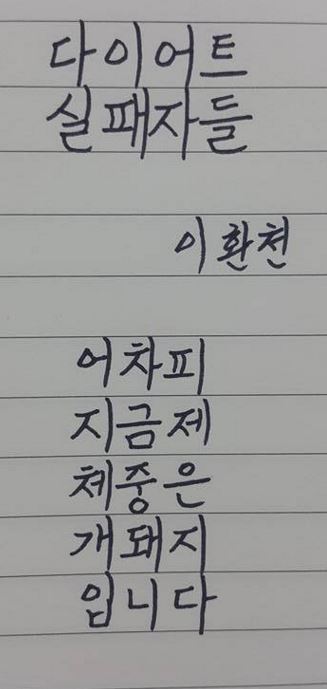 다이어트
실패자들
이환천
어차피
지금제
체중은
개돼지
입니다